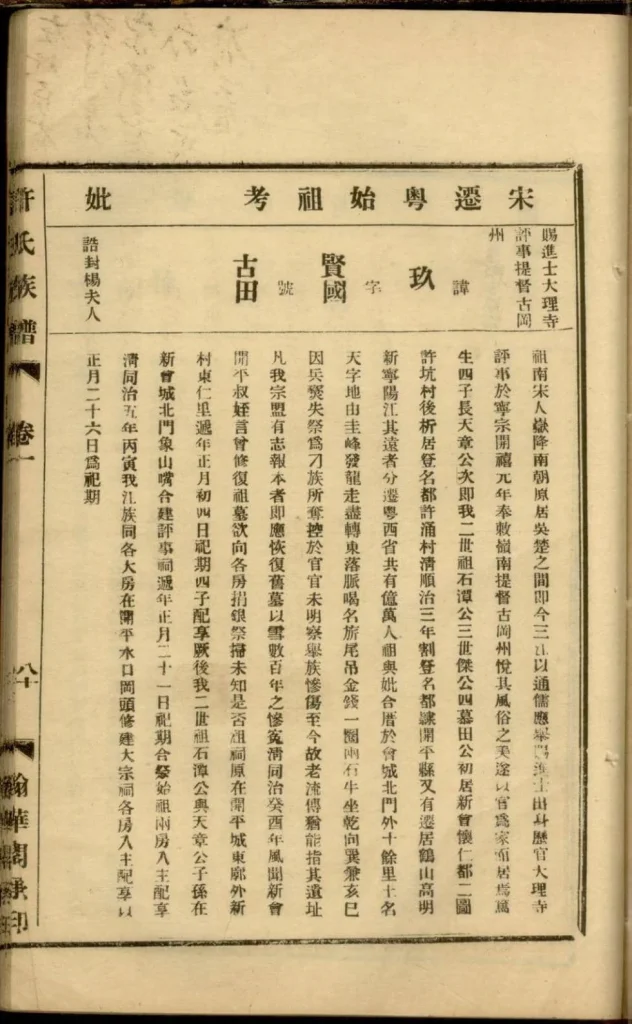 宋遷粵始祖考 妣
賜進士大理寺
評事提督古岡
州
諱
玖
字
賢國
號
古田
誥封楊夫人
祖南宋人嶽降南朝原居吳楚之間即今三江以通儒應舉賜進士出身歷官大理寺
評事於寧宗開禧元年奉敕嶺南提督古岡州悅其風俗之美遂以官為家而居焉
生四子長天章公次即我二世祖石潭公三世傑公四慕田公初居新會懷仁都二圖
許坑村後析居登名都許涌村清順治三年割登名都隸開平縣又有遷居鶴山高明
新寧陽江其遠者分遷粵西省共有億萬人祖與妣合厝於會城北門外十餘里土名
天字地由圭峰發龍走盡轉東落脈喝名旂尾吊金錢一圈兩石牛坐乾向巽兼亥巳
因兵燹失祭為刁族所奪控於官官未明察舉族慘傷至今故老流傳猶能指其遺址
凡我宗盟有志報本者即應恢復舊墓以雪數百年之慘寃清同治癸酉年風聞新會
開平叔姪言曾修復祖墓欲向各房捐銀祭掃未知是否祖祠原在開平城東廓外新
村東仁里遞年正月初四日祀期四子配享厥後我二世祖石潭公與天章公子孫在
新會城北門象山嘴合建評事祠遞年正月二十一日祀期合祭始祖兩房入主配享
清同治五年丙寅我江族同各大房在開平水口岡頭修建大宗祠各房入主配享以
正月二十六日為祀期
許氏族譜
卷一
八十
翰華閣承印